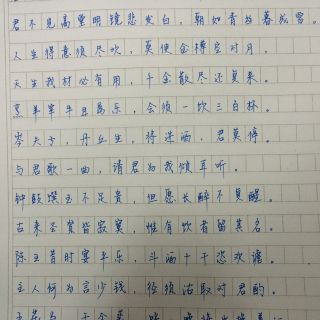 君不见高堂明镜悲白发，朝如青丝暮成雪。
人生得意须尽欢，莫使金樽空对月。
天生我材必有用，千金散尽还复来。
烹羊宰牛且为乐，会须一饮三百杯。
岑夫子，丹丘生，将进酒，君莫停。
与君歌一曲，请君为我倾耳听。
钟鼓馔玉不足贵，但愿长醉不复醒。
古来圣贤皆寂寞，惟有饮者留其名。
陈王昔时宴平乐，斗酒十千恣欢谑。
主人何为言少钱，径须沽取对君酌。